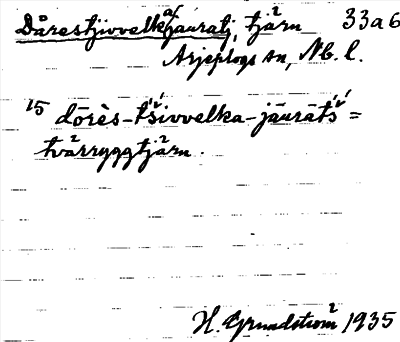 Dårestjivvelkajauratj, tjärn 33a6
Arjeplogs sn, Nb. l.
15 dōrès-t́śivvelka-jāurātś =
tvärryggtjärn.
H. Grundström 1935